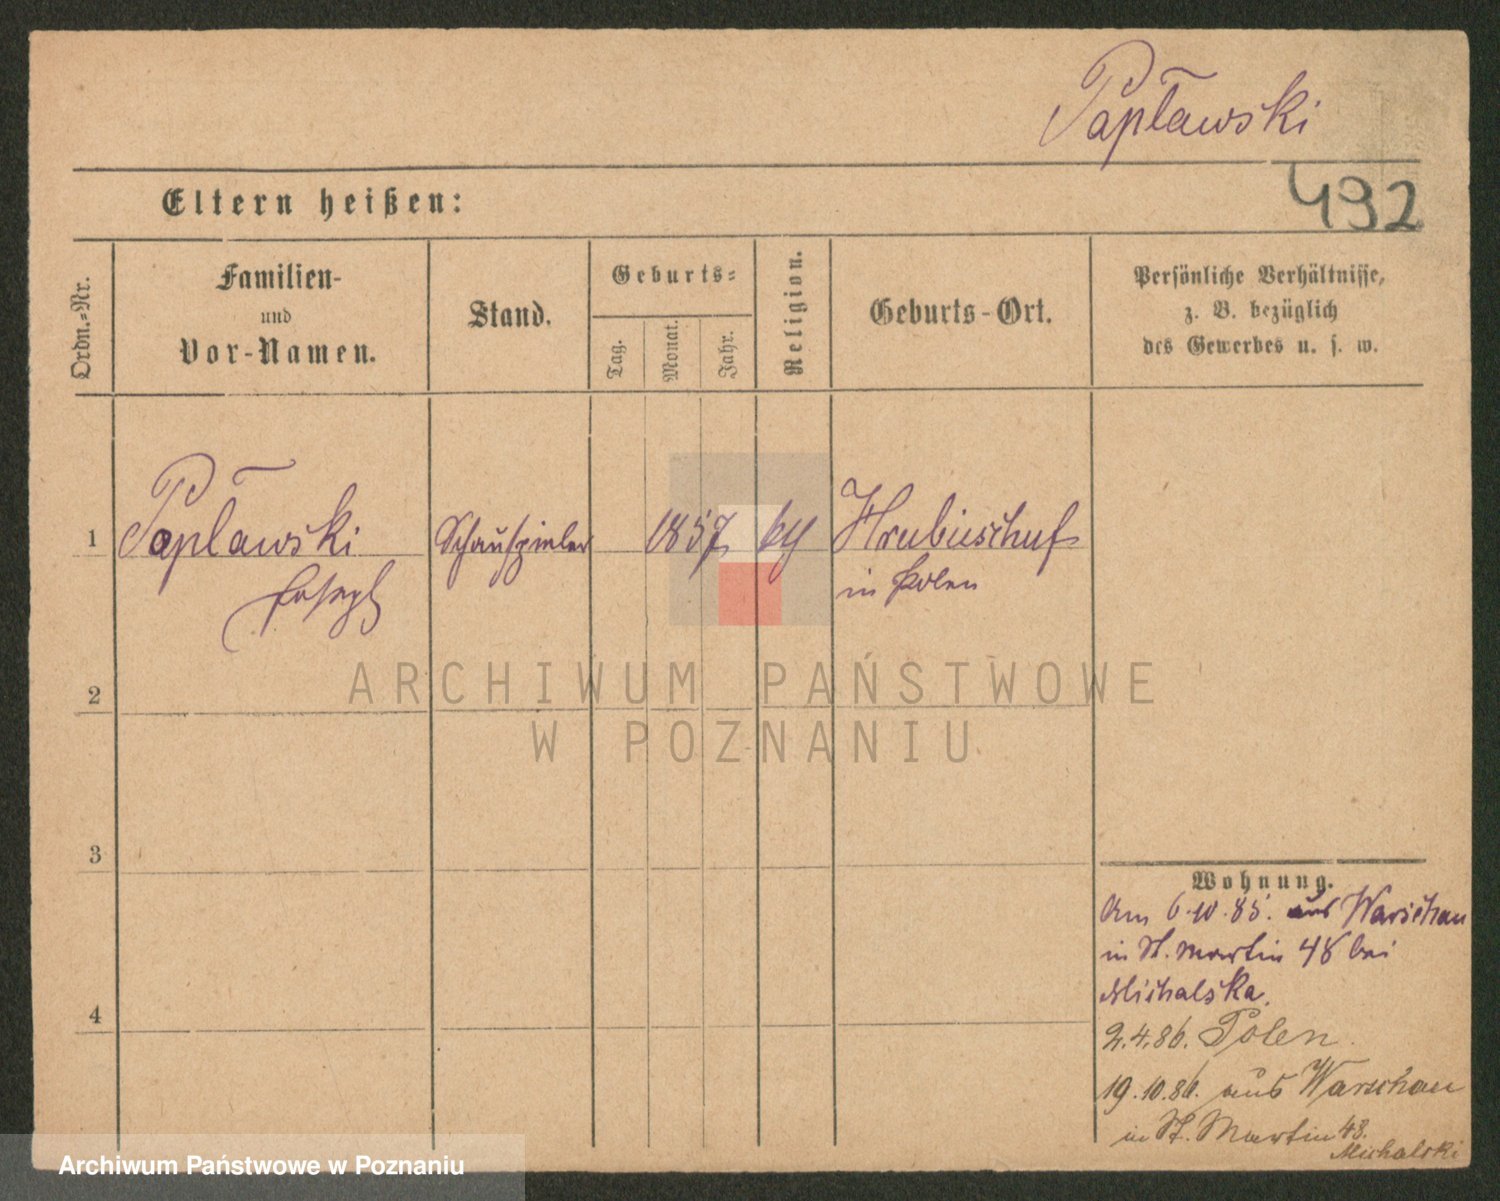 Papławski
492
Eltern heißen:
Ordn.-Nr.
Familien-
und
Vor-Namen.
Stand.
Geburts-
Tag.
Monat.
Jahr.
Religion.
Geburts-Ort.
Persönliche Verhältnisse,
z. B. bezüglich
des Gewerbes u. s. w.
1
Papławski
Joseph
Schauspieler
1857
Hrubieschuf
in Polen
2
3
4
Wohnung.
Am 6.10.85. aus Warschau
in St. Martin 48 bei
Michalska.
2.4.86. Polen.
19.10.86. aus Warschau
in St. Martin 48.
Michalski
ARCHIWUM PAŃSTWOWE
W POZNANIU
Archiwum Państwowe w Poznaniu